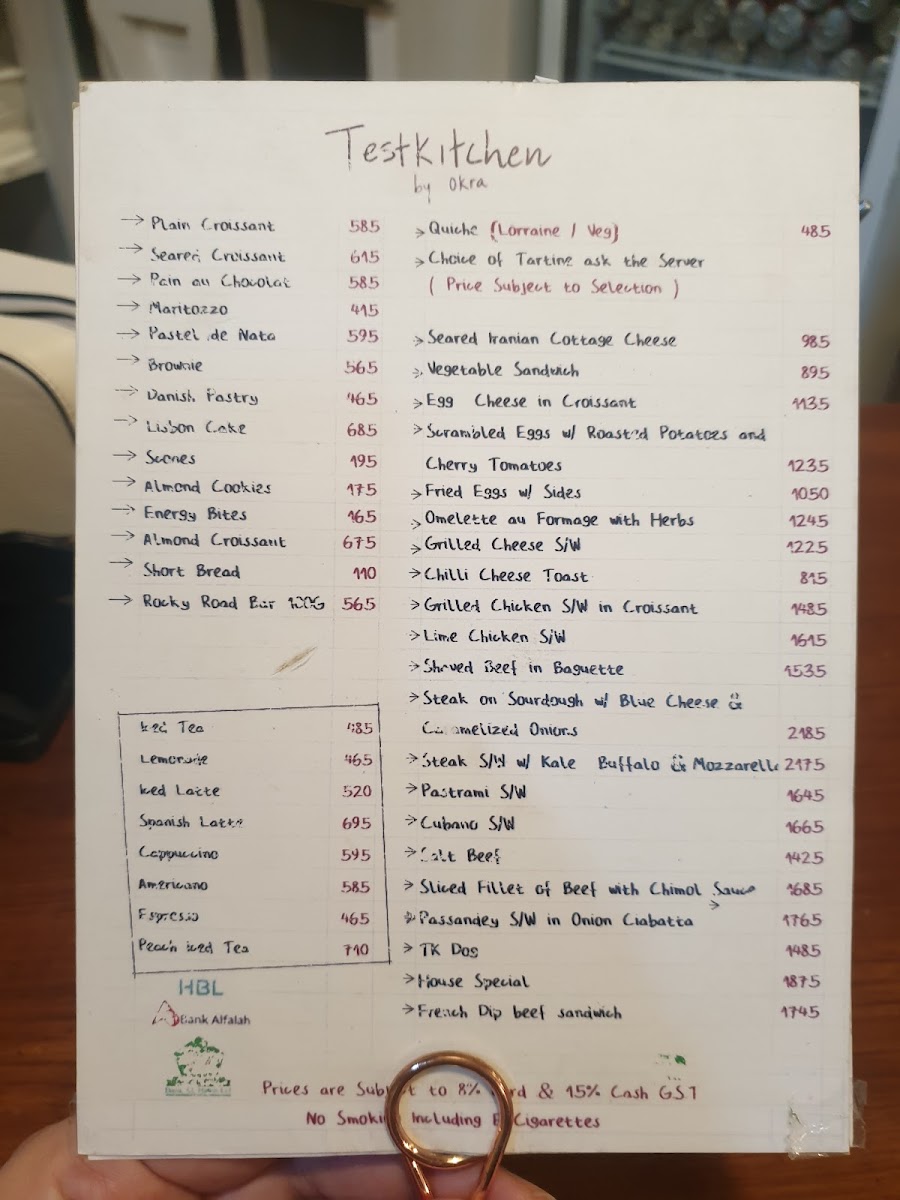 Testkitchen
by Okra
→ Plain Croissant 585
→ Seared Croissant 615
→ Pain au Chocolat 585
→ Maritozzo 415
→ Pastel de Nata 595
→ Brownie 565
→ Danish Pastry 465
→ Lisbon Cake 685
→ Scones 195
→ Almond Cookies 175
→ Energy Bites 165
→ Almond Croissant 675
→ Short Bread 110
→ Rocky Road Bar 100G 565
Iced Tea 485
Lemonade 465
Iced Latte 520
Spanish Latte 695
Cappuccino 595
Americano 585
Espresso 465
Peach iced Tea 710
HBL
Bank Alfalah
→ Quiche (Lorraine / Veg) 485
→ Choice of Tartine ask the Server
( Price Subject to Selection )
→ Seared Iranian Cottage Cheese 985
→ Vegetable Sandwich 895
→ Egg Cheese in Croissant 1135
→ Scrambled Eggs w/ Roasted Potatoes and
Cherry Tomatoes 1235
→ Fried Eggs w/ Sides 1050
→ Omelette au Formage with Herbs 1245
→ Grilled Cheese S/W 1225
→ Chilli Cheese Toast 815
→ Grilled Chicken S/W in Croissant 1485
→ Lime Chicken S/W 1615
→ Shaved Beef in Baguette 1535
→ Steak on Sourdough w/ Blue Cheese &
Caramelized Onions 2185
→ Steak S/W w/ Kale Buffalo & Mozzarella 2175
→ Pastrami S/W 1645
→ Cubano S/W 1665
→ Salt Beef 1425
→ Sliced Fillet of Beef with Chimol Sauce 1685
→ Passandey S/W in Onion Ciabatta 1765
→ TK Dog 1485
→ House Special 1875
→ French Dip beef sandwich 1745
Prices are Subject to 8% Card & 15% Cash GST
No Smoking Including E Cigarettes